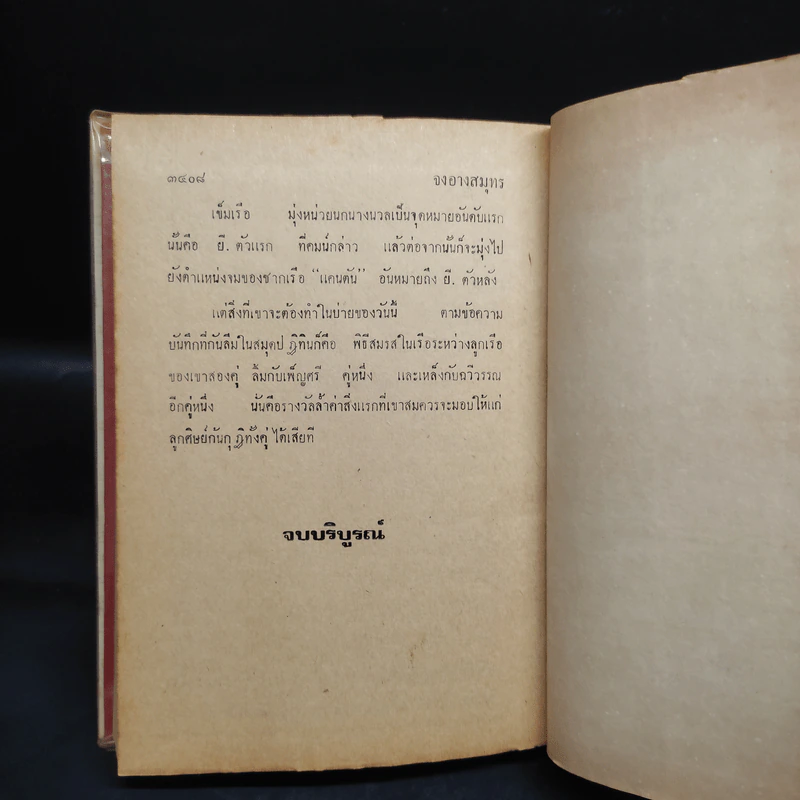 ๓๔๐๘ จงอางสมุทร
เข็มเรือ มุ่งหน่วยนกนางนวลเป็นจุดหมายอันดับแรก
นั้นคือ ยี. ตัวแรก ที่คมน์กล่าว แล้วต่อจากนั้นก็จะมุ่งไป
ยังตำแหน่งจมของซากเรือ "แคนตัน" อันหมายถึง ยี. ตัวหลัง
แต่สิ่งที่เขาจะต้องทำในบ่ายของวันนี้ ตามข้อความ
บันทึกที่กันลืมในสมุดปฏิทินก็คือ พิธีสมรสในเรือระหว่างลูกเรือ
ของเขาสองคู่ ลิ้มกับเพ็ญศรี คู่หนึ่ง และเหล็งกับฉวีวรรณ
อีกคู่หนึ่ง นั่นคือรางวัลล้ำค่าสิ่งแรกที่เขาสมควรจะมอบให้แก่
ลูกศิษย์ก้นกุฏิทั้งคู่ได้เสียที
จบบริบูรณ์